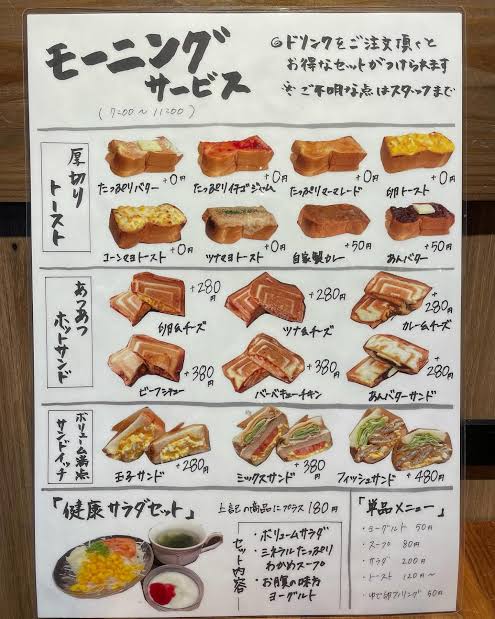 モーニング
サービス
(7:00～11:00)
◎ドリンクをご注文頂くと
お得なセットがつけられます
※ご不明な点はスタッフまで
厚切り
トースト
たっぷりバター +0円
たっぷりイチゴジャム +0円
たっぷりマーマレード +0円
卵トースト +0円
コーンマヨトースト +0円
ツナマヨトースト +0円
自家製カレー +50円
あんバター +50円
あつあつ
ホットサンド
卵&チーズ +280円
ツナ&チーズ +280円
カレー&チーズ +280円
ビーフシチュー +380円
バーベキューチキン +380円
あんバターサンド +280円
ボリューム満点
サンドイッチ
玉子サンド +280円
ミックスサンド +380円
フィッシュサンド +480円
「健康サラダセット」 上記の商品にプラス 180円
セット内容
・ボリュームサラダ
・ミネラルたっぷり
わかめスープ
・お腹の味方
ヨーグルト
「単品メニュー」
・ヨーグルト 50円
・スープ 80円
・サラダ 200円
・トースト 120円～
・ゆで卵フィリング 50円